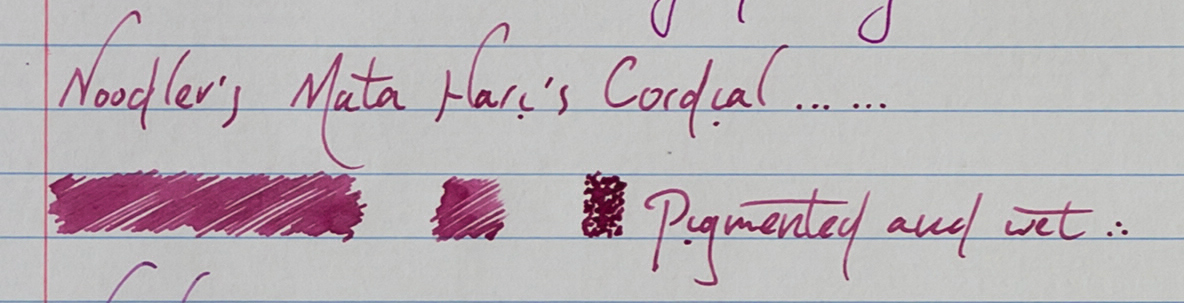 Noodler's Mata Hari's Cordial ... ...
Pigmented and wet ∴